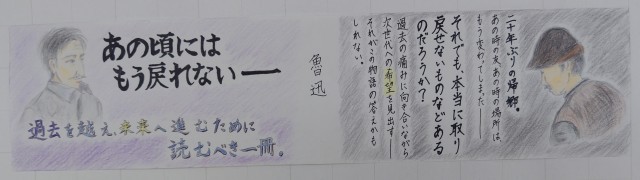 あの頃には
もう戻れない――
過去を越え、未来へ進むために
読むべき一冊。
魯迅
二十年ぶりの帰郷。
あの時の友、あの時の場所は、
もう変わってしまった――
それでも、本当に取り
戻せないものなどある
のだろうか？
過去の痛みに向き合いながら
次世代への希望を見出す――
それがこの物語の答えかも
しれない。